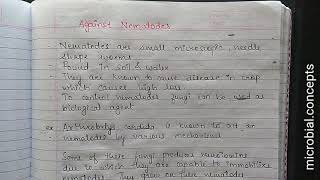 Against Nematodes
- Nematodes are small microscopic, needle
shape worms
- Found in soil & water
- They are known to cause disease in crop
which causes high loss
- To control nematodes fungi can be used as
biological agent
ex Arthrobotrys candida is known to act on
nematodes by various mechanism
Some of these fungi produce
due to which they are capable to immobilize
nematodes. They grow on these nematodes
microbial.concepts